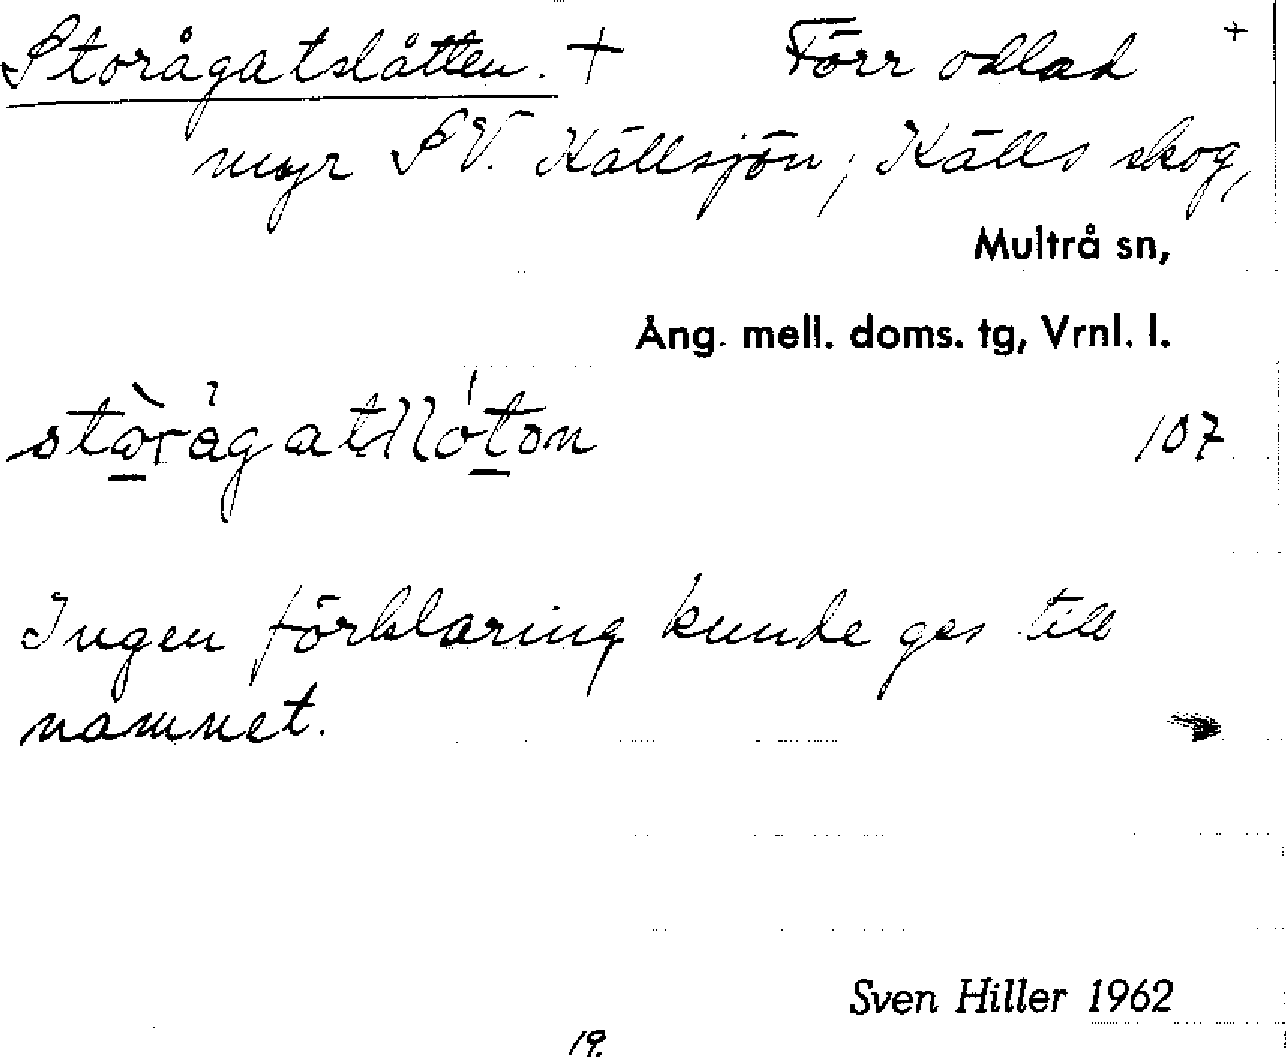 Storågatslåtten. + Förr odlad +
myr SV. Källsjön; Källs skog,
Multrå sn,
Ång. mell. doms. tg, Vrnl. l.
107
Ingen förklaring kunde ges till
namnet.
Sven Hiller 1962
19.